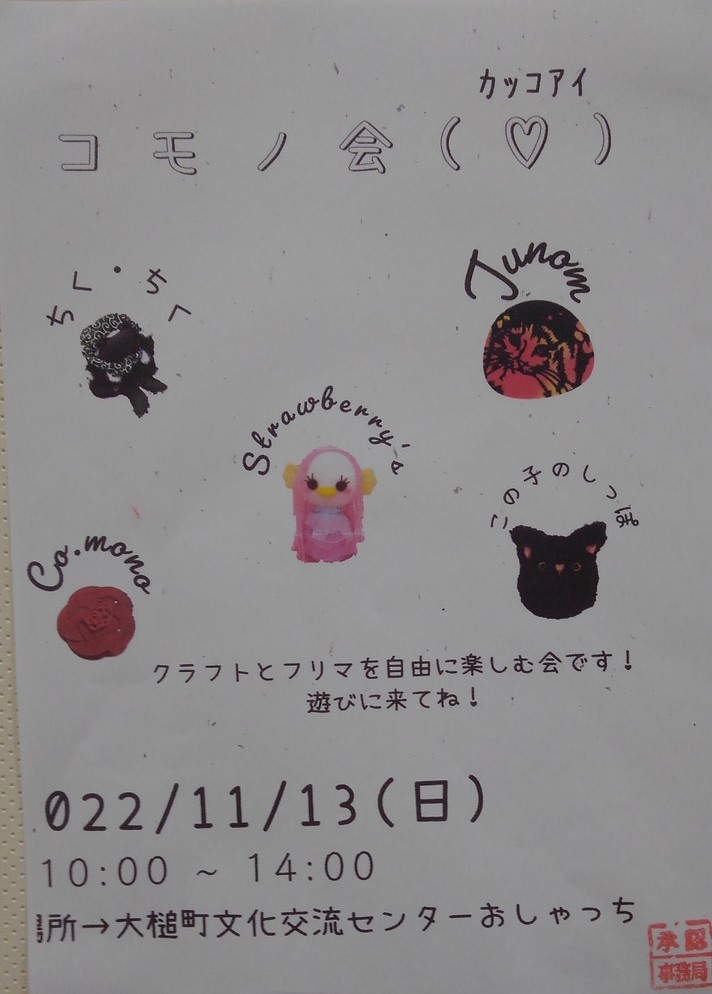 カッコアイ
コモノ会(♡)
ちく・ちく
Junom
Strawberry's
この子のしっぽ
Co.mono
クラフトとフリマを自由に楽しむ会です！
遊びに来てね！
022/11/13(日)
10:00 ~ 14:00
場所→大槌町文化交流センターおしゃっち
承認
事務局